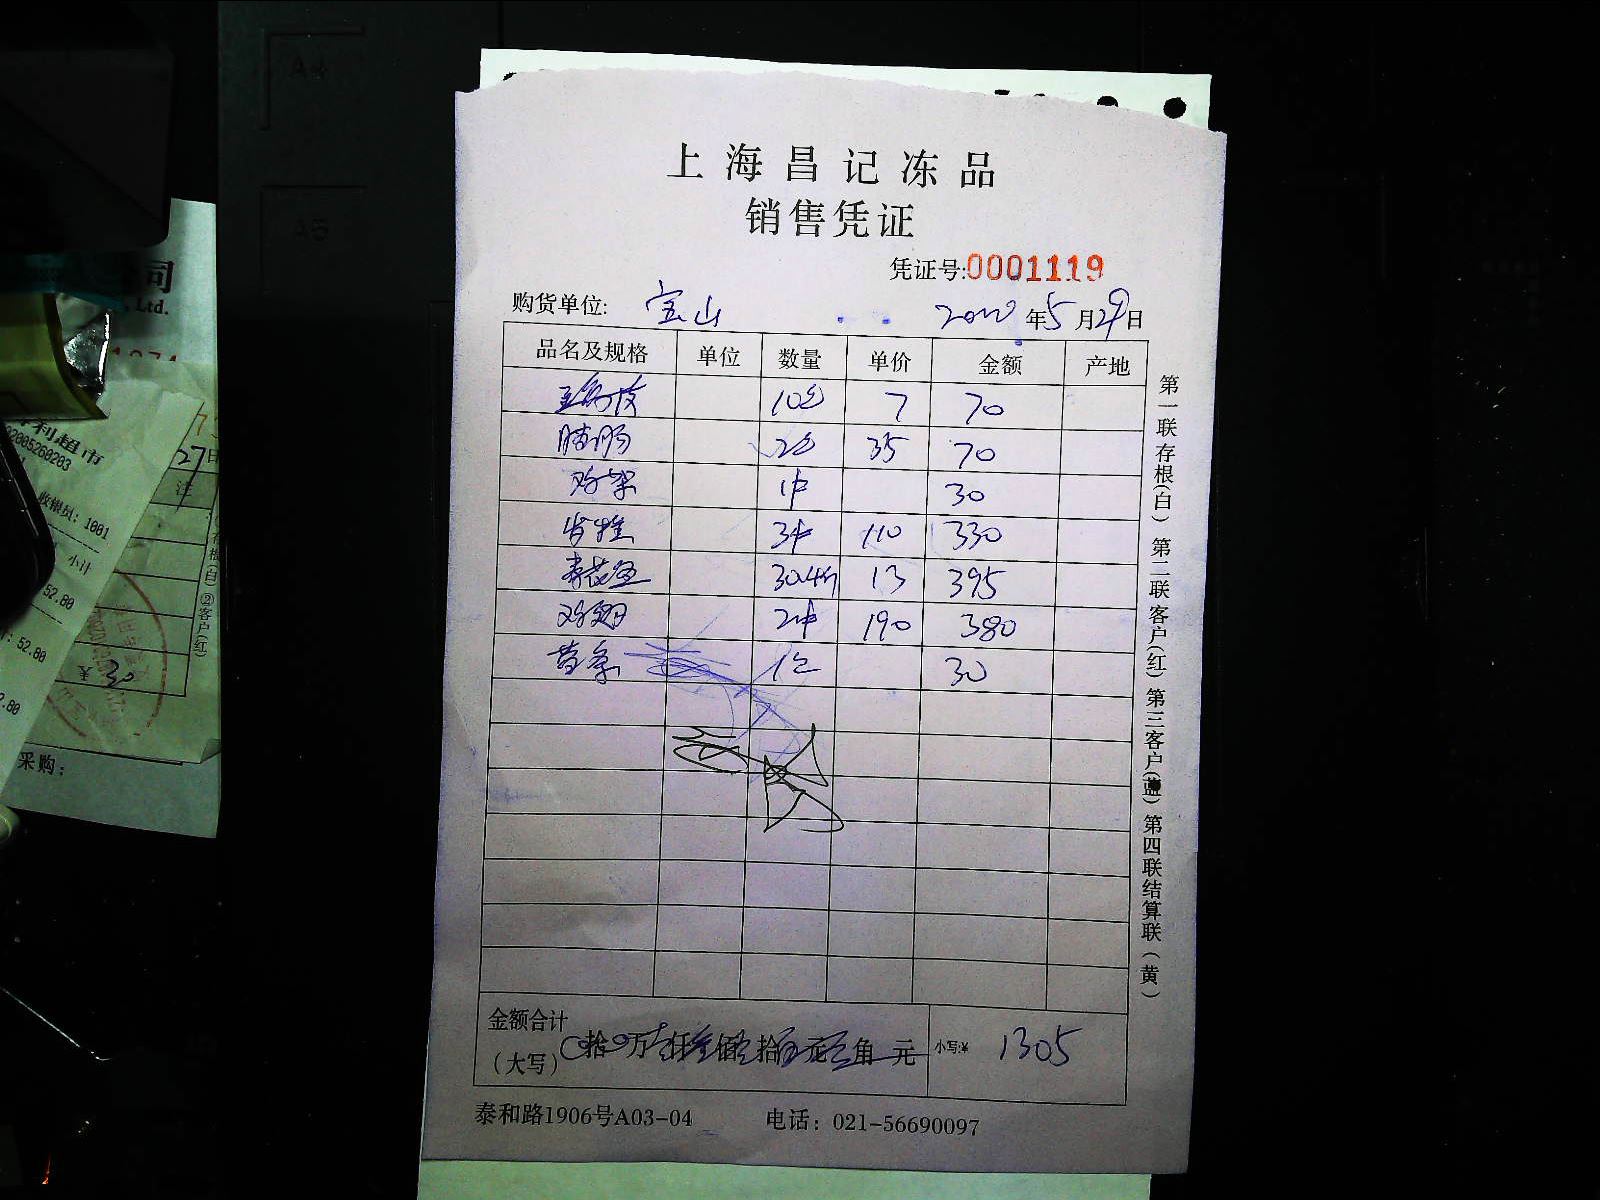 上海昌记冻品
销售凭证
凭证号:0001119
购货单位: 宝山 2020年5月29日
品名及规格 单位 数量 单价 金额 产地
10包 7 70
脆肠 2包 35 70
鸡架 1件 30
3件 110 330
青花鱼 30.4斤 13 395
鸡翅 2件 190 380
1包 30
金额合计
(大写) 拾 万 仟 佰 拾 元 角 元 小写:¥ 1305
泰和路1906号A03-04 电话: 021-56690097
第一联存根(白) 第二联客户(红) 第三客户(蓝) 第四联结算联(黄)
A4
A5
司
, Ltd.
利超市
02005260203
收银员: 1001
小计
52.80
: 52.80
27日
注
②客户(红)
¥ 30
采购: